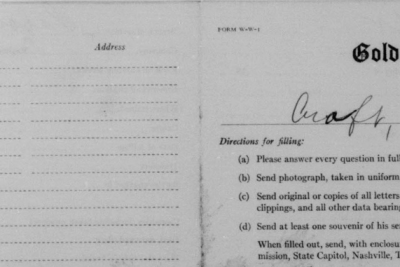 Address
FORM W-W-1
Gold
Craft,
Directions for filing:
(a) Please answer every question in full
(b) Send photograph, taken in uniform
(c) Send original or copies of all letters
clippings, and all other data bearing
(d) Send at least one souvenir of his se
When filled out, send, with enclosu
mission, State Capitol, Nashville, T